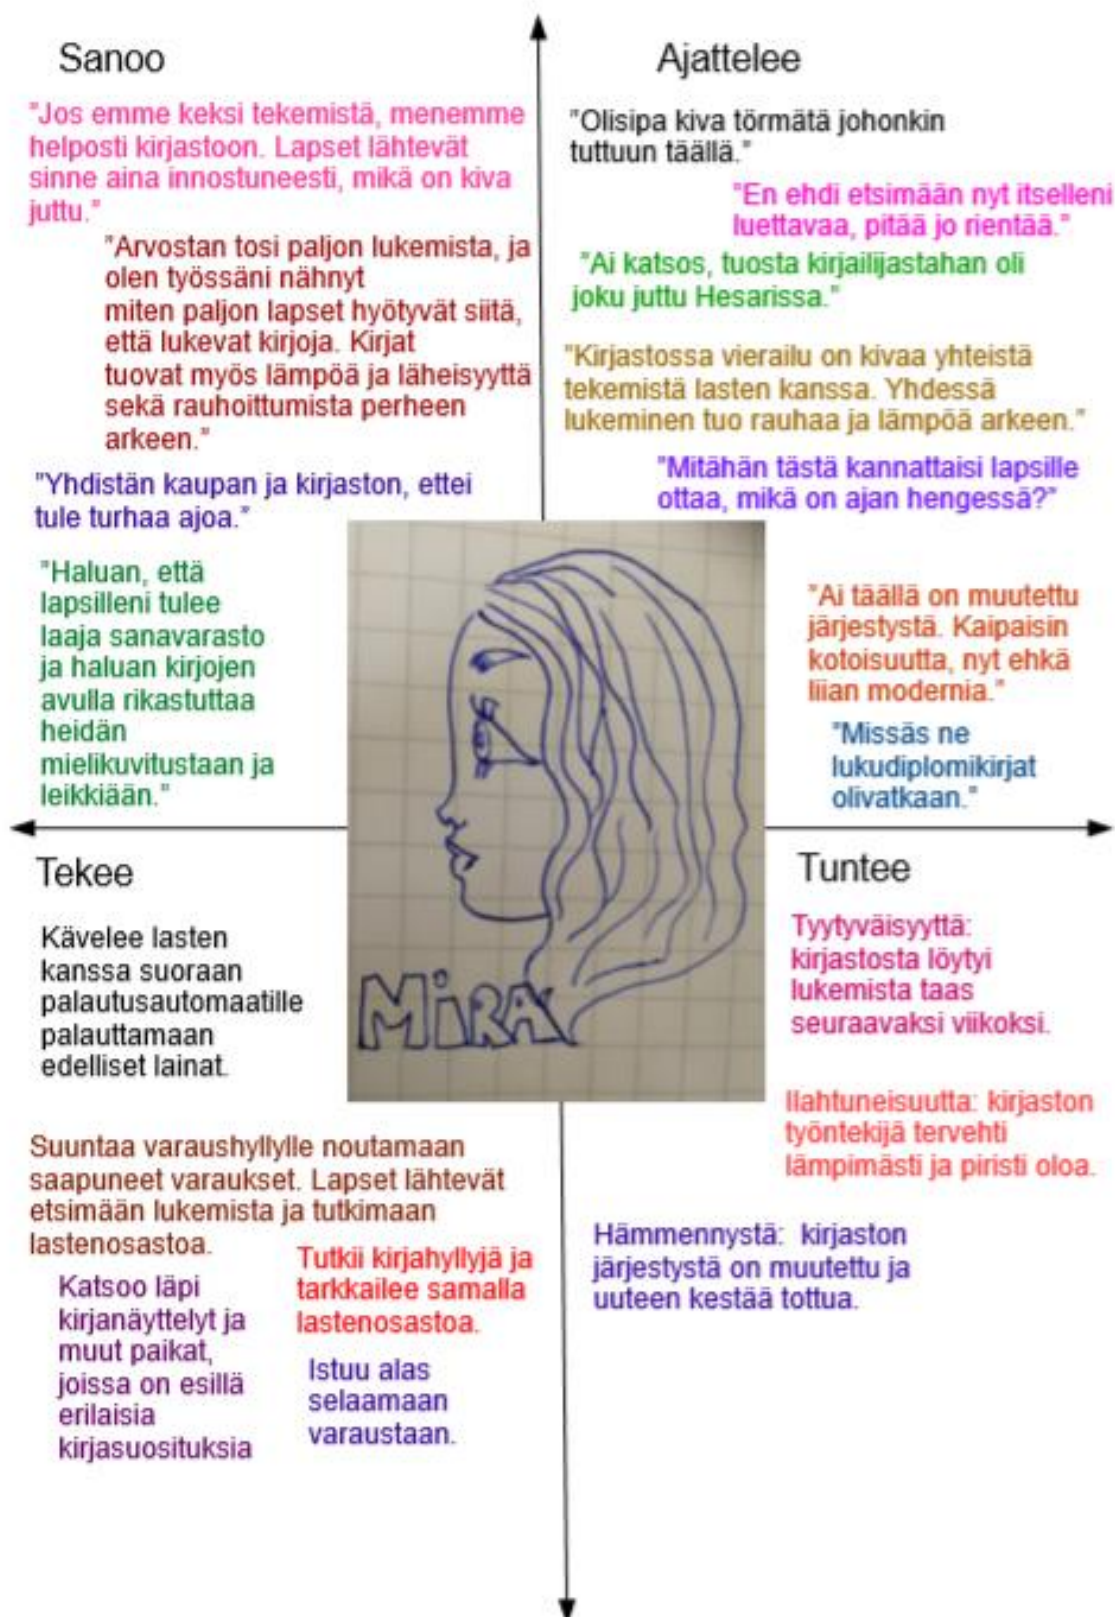 Sanoo
"Jos emme keksi tekemistä, menemme
helposti kirjastoon. Lapset lähtevät
sinne aina innostuneesti, mikä on kiva
juttu."
"Arvostan tosi paljon lukemista, ja
olen työssäni nähnyt
miten paljon lapset hyötyvät siitä,
että lukevat kirjoja. Kirjat
tuovat myös lämpöä ja läheisyyttä
sekä rauhoittumista perheen
arkeen."
"Yhdistän kaupan ja kirjaston, ettei
tule turhaa ajoa."
"Haluan, että
lapsilleni tulee
laaja sanavarasto
ja haluan kirjojen
avulla rikastuttaa
heidän
mielikuvitustaan ja
leikkiään."
Ajattelee
"Olisipa kiva törmätä johonkin
tuttuun täällä."
"En ehdi etsimään nyt itselleni
luettavaa, pitää jo rientää."
"Ai katsos, tuosta kirjailijastahan oli
joku juttu Hesarissa."
"Kirjastossa vierailu on kivaa yhteistä
tekemistä lasten kanssa. Yhdessä
lukeminen tuo rauhaa ja lämpöä arkeen."
"Mitähän tästä kannattaisi lapsille
ottaa, mikä on ajan hengessä?"
"Ai täällä on muutettu
järjestystä. Kaipaisin
kotoisuutta, nyt ehkä
liian modernia."
"Missäs ne
lukudiplomikirjat
olivatkaan."
MiRA
Tekee
Kävelee lasten
kanssa suoraan
palautusautomaatille
palauttamaan
edelliset lainat.
Suuntaa varaushyllylle noutamaan
saapuneet varaukset. Lapset lähtevät
etsimään lukemista ja tutkimaan
lastenosastoa.
Tutkii kirjahyllyjä ja
tarkkailee samalla
lastenosastoa.
Katsoo läpi
kirjanäyttelyt ja
muut paikat,
joissa on esillä
erilaisia
kirjasuosituksia
Istuu alas
selaamaan
varaustaan.
Tuntee
Tyytyväisyyttä:
kirjastosta löytyi
lukemista taas
seuraavaksi viikoksi.
Ilahtuneisuutta: kirjaston
työntekijä tervehti
lämpimästi ja piristi oloa.
Hämmennystä: kirjaston
järjestystä on muutettu ja
uuteen kestää tottua.